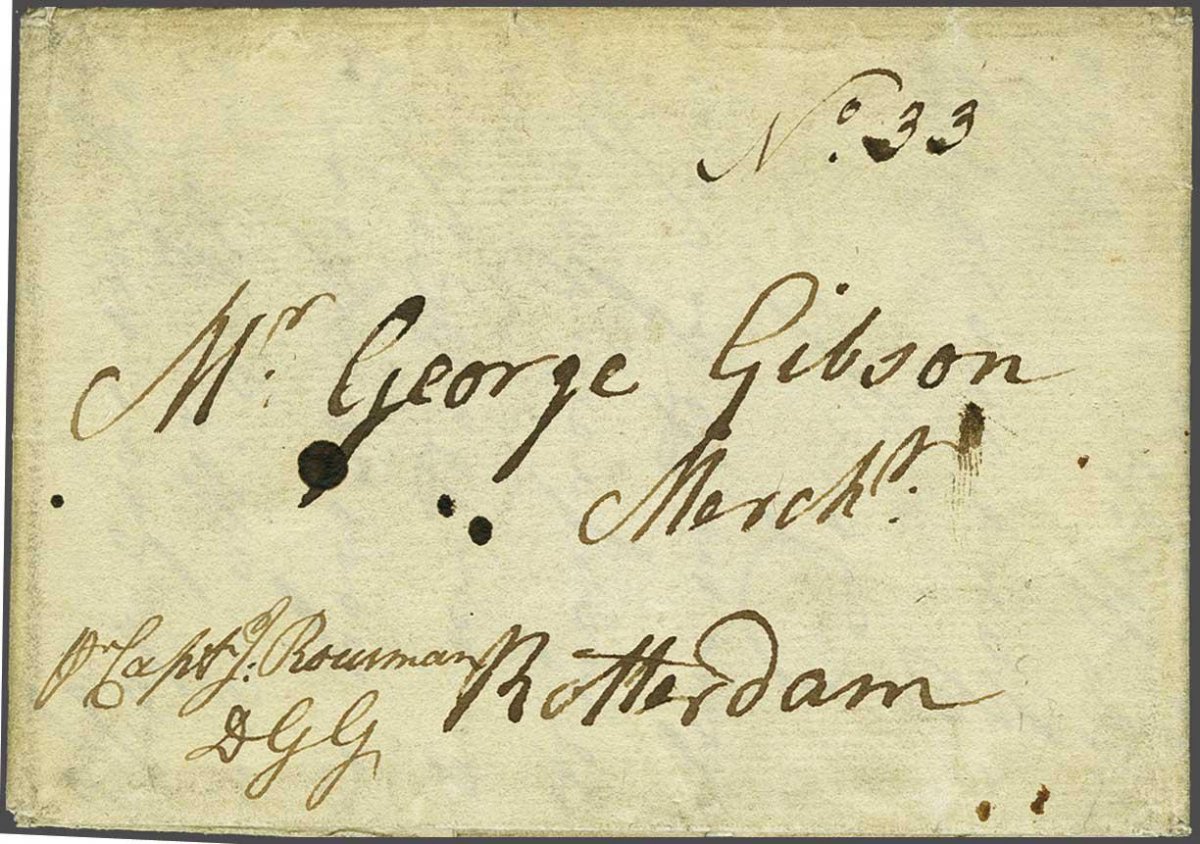 No. 33
Mr. George Gibson
Mercht.
Rotterdam
pr Capt J. Rousman
DGG